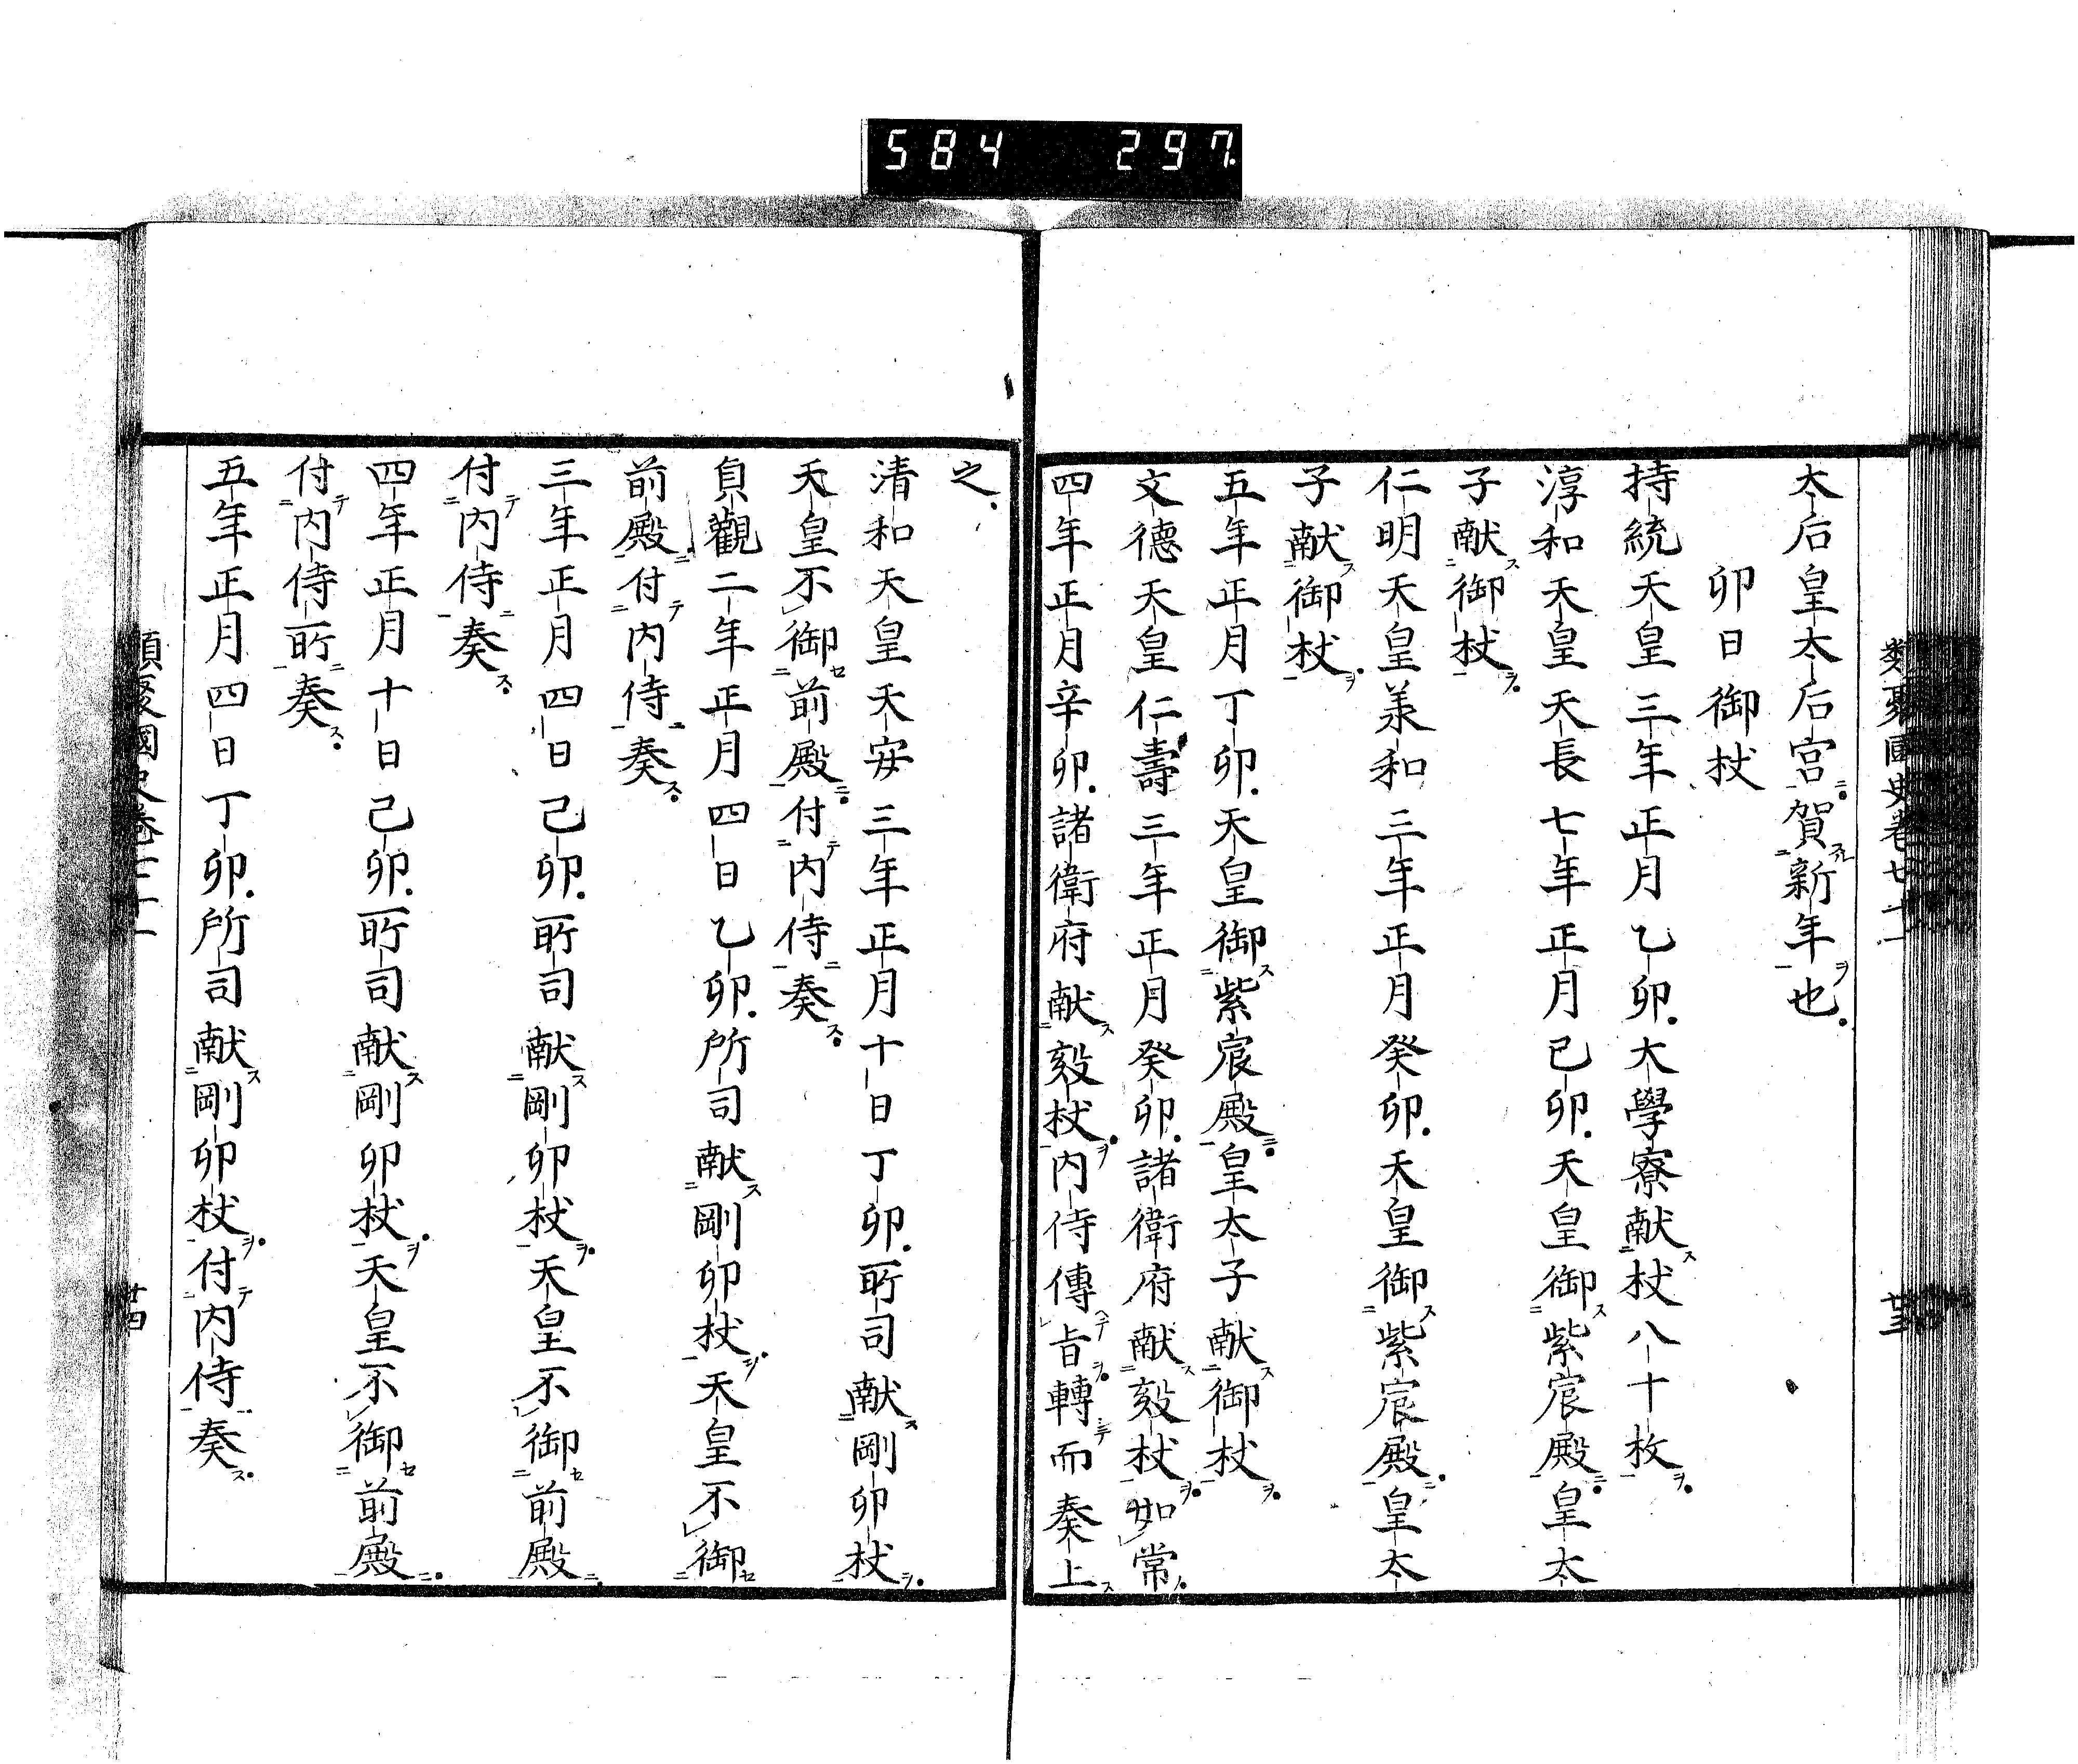 584 297
太后皇太后宮賀新年也
卯日御杖
持統天皇三年正月乙卯大學寮献杖八十枚
淳和天皇天長七年正月己卯天皇御紫宸殿皇太
子献御杖
仁明天皇羕和三年正月癸卯天皇御紫宸殿皇太
子献御杖
五年正月丁卯天皇御紫宸殿皇太子献御杖
文德天皇仁壽三年正月癸卯諸衛府献剢杖如常
四年正月辛卯諸衛府献剢杖内侍傳旨轉而奏上
之
清和天皇天安三年正月十日丁卯所司献剛卯杖
天皇不御前殿付内侍奏
貞觀二年正月四日乙卯所司献剛卯杖天皇不御
前殿付内侍奏
三年正月四日己卯所司献剛卯杖天皇不御前殿
付内侍奏
四年正月十日己卯所司献剛卯杖天皇不御前殿
付内侍所奏
五年正月四日丁卯所司献剛卯杖付内侍奏
類聚國史卷
廿四